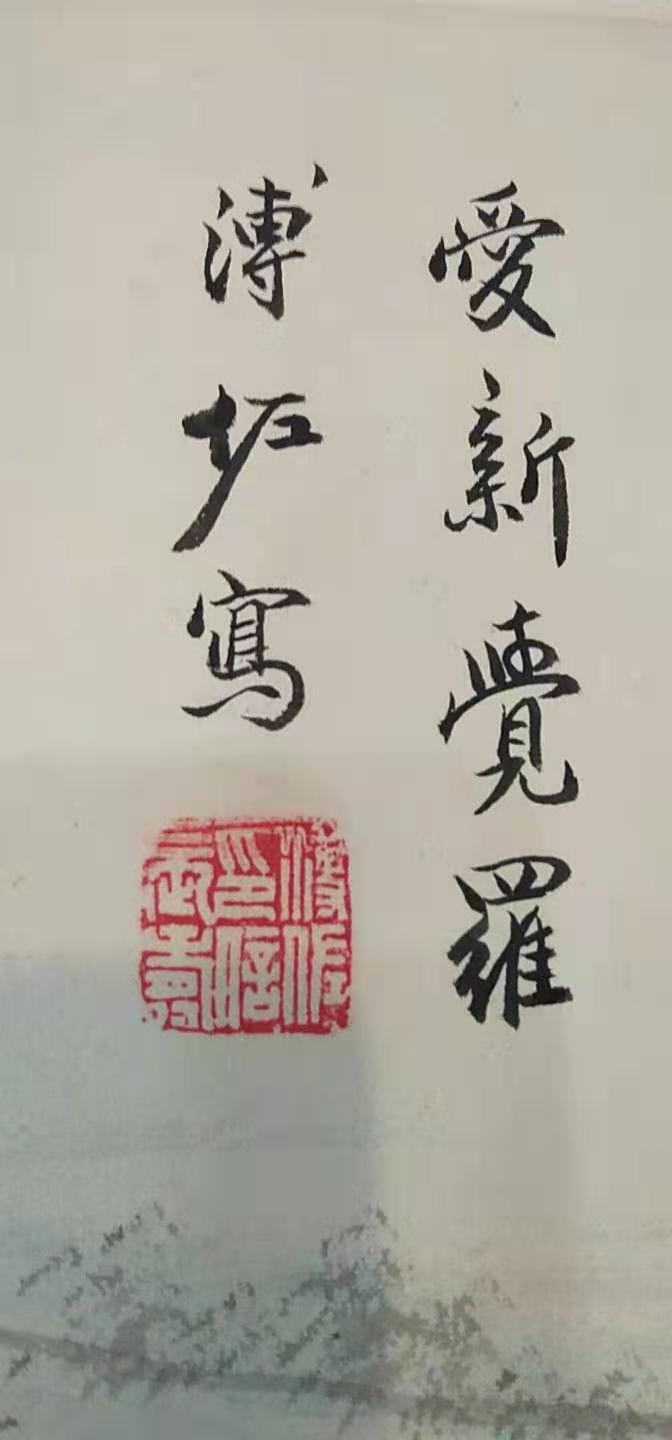 愛新覺羅
溥佐寫